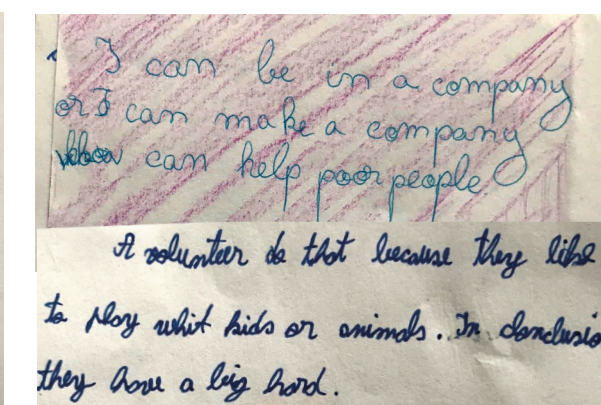 I can be in a company
or I can make a company
can help poor people.
A volunteer do that because they like
to play whit kids or animals. In conclusio
they have a big hard.